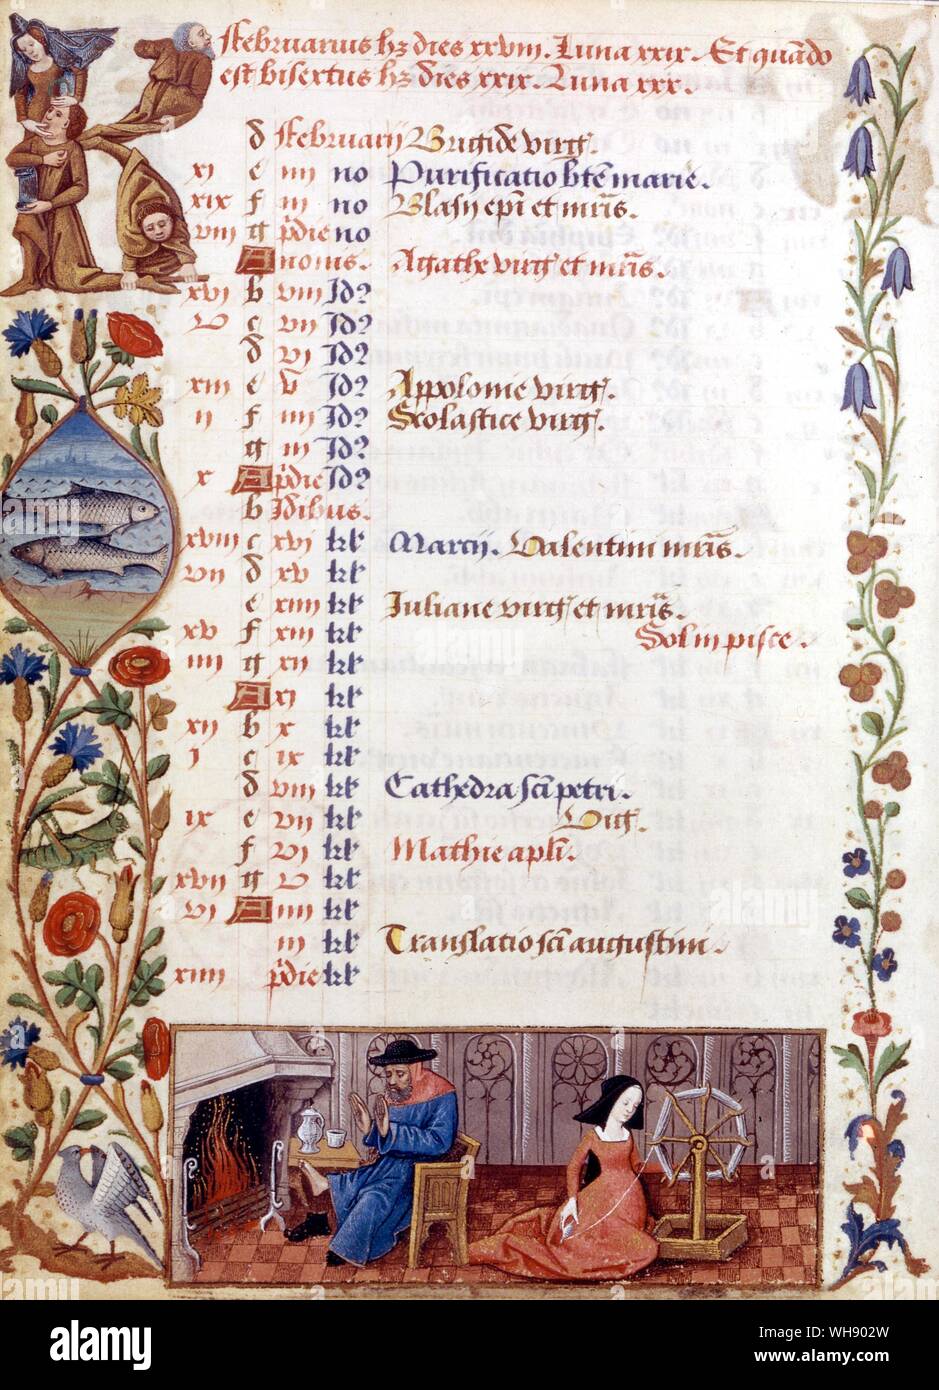 Februarius hz dies xxviii. Luna xxix. Et quando
est bisextus hz dies xxix. Luna xxx.
d Februarii Brigide virg.
xi e iiii no Purificatio bte marie.
xix f iii no Blasii epi et mris.
viii g pdie no
A nonis. Agathe virg et mris.
xvi b viii Id
v c vii Id
d vi Id
xiii e v Id Appolonie virg.
ii f iiii Id Scolastice virg.
g iii Id
x A pdie Id
b Idibus.
xviii c xvi kl Marcii. Valentini mris.
vii d xv kl
e xiiii kl Iuliane virg et mris.
xv f xiii kl Sol in pisce.
iiii g xii kl
A xi kl
xii b x kl
i c ix kl
d viii kl Cathedra sci petri.
ix e vii kl Vig.
f vi kl Mathie apli.
xvii g v kl
vi A iiii kl
iii kl Translatio sci augustini.
xiiii pdie kl
alamy
alamy
Image ID: WH902W
www.alamy.com